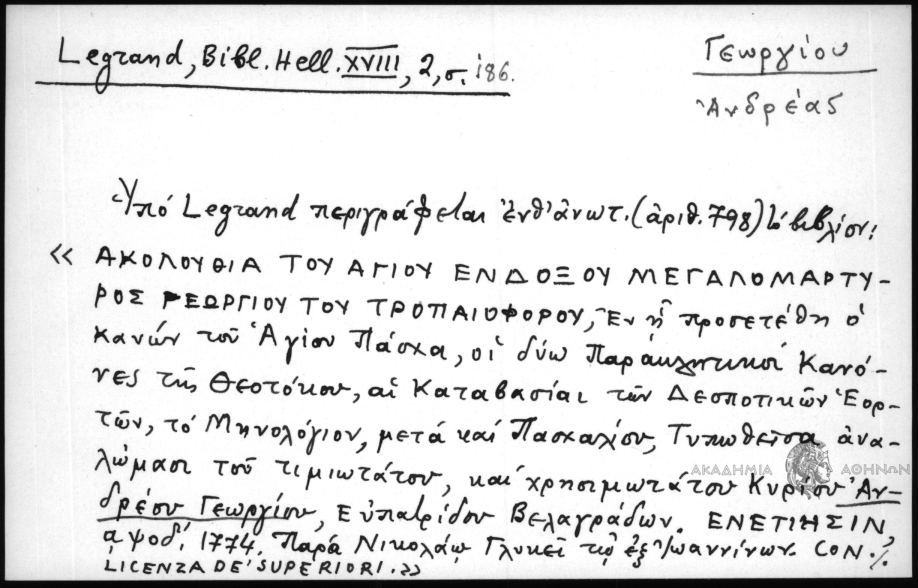 Legrand, Bibl. Hell. XVIII, 2, σ. 186.
Γεωργίου
Ἀνδρέας
Ὑπό Legrand περιγράφεται ἐνθ' ἀνωτ. (ἀριθ. 798) τό βιβλίον:
« ΑΚΟΛΟΥΘΙΑ ΤΟΥ ΑΓΙΟΥ ΕΝΔΟΞΟΥ ΜΕΓΑΛΟΜΑΡΤΥ-
ΡΟΣ ΓΕΩΡΓΙΟΥ ΤΟΥ ΤΡΟΠΑΙΟΦΟΡΟΥ, Ἐν ᾗ προσετέθη ὁ
Κανών τοῦ Ἁγίου Πάσχα, οἱ δύω Παρακλητικοί Κανό-
νες τῆς Θεοτόκου, αἱ Καταβασίαι τῶν Δεσποτικῶν Ἑορ-
τῶν, τό Μηνολόγιον, μετά καί Πασχαλίου, Τυπωθεῖσα ἀνα-
λώμασι τοῦ τιμιωτάτου, καί χρησιμωτάτου Κυρίου Ἀν-
δρέου Γεωργίου, Εὐπατρίδου Βελαγράδων. ΕΝΕΤΙΗΣΙΝ,
αψοδ'. 1774. Παρά Νικολάῳ Γλυκεῖ τῷ ἐξ Ἰωαννίνων. CON
LICENZA DE' SUPERIORI. »
ΑΚΑΔΗΜΙΑ ΑΘΗΝΩΝ